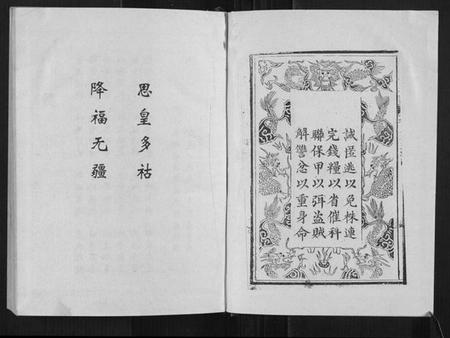 誡匿逃以免株連
完錢糧以省催科
聯保甲以弭盗賊
解讐忿以重身命
思皇多祜
降福无疆